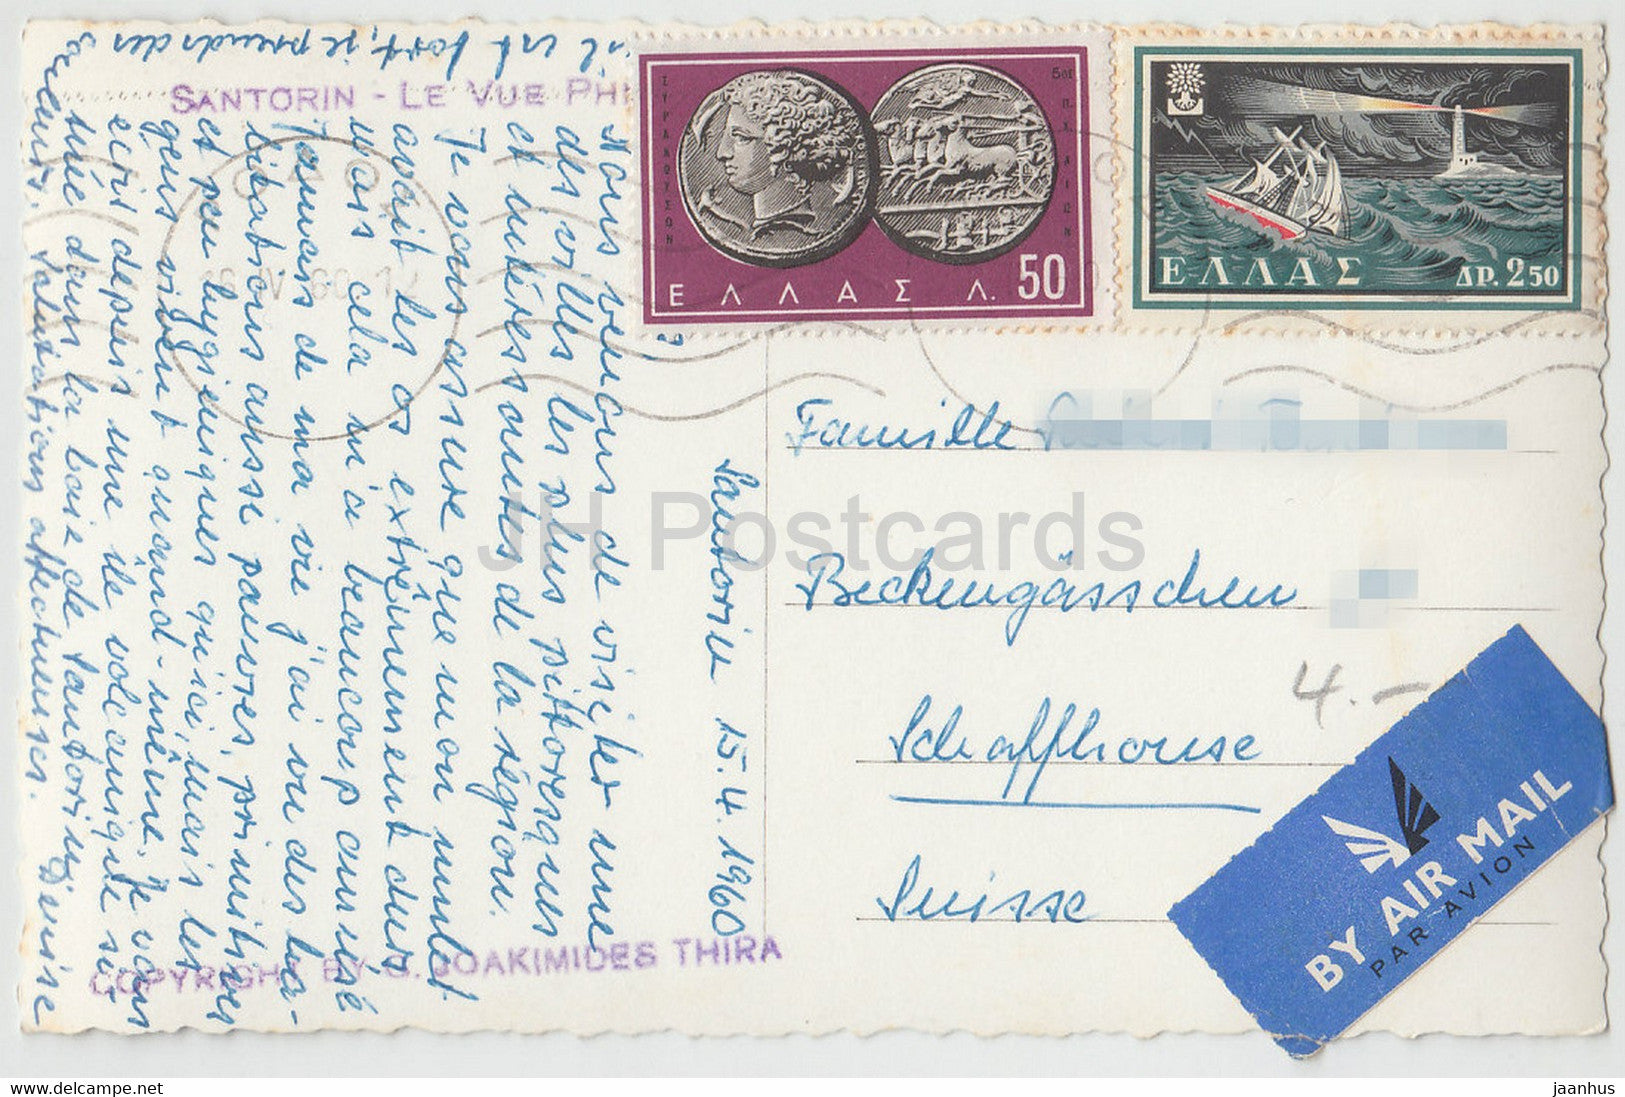 SANTORIN - LE VUE PHI
Santorin 15.4.1960
Nous venons de visiter une
des villes les plus pittoresques
et intéressantes de la région.
Je vous assure que mon mulet
avait les os extrêmement durs
mais cela m'a beaucoup amusé
Jamais de ma vie j'ai vu des ha-
bitations aussi pauvres, primitives
et peu hygiéniques qu'ici, mais les
gens vivent quand-même. Je vous
écris depuis une île volcanique si-
tuée dans la baie de Santorin,
Salutations affectueuses. Denise
il est fort, je prends des
COPYRIGHT BY JOAKIMIDES THIRA
ΣΥΡΑΚΟΥΣΩΝ
5ος π.Χ. ΑΙΩΝ
ΕΛΛΑΣ Λ. 50
ΕΛΛΑΣ ΔΡ. 2.50
Famille
Beckengässchen
Schaffhouse
Suisse
4.-
BY AIR MAIL
PAR AVION
JH Postcards
https://www.ebay.net/
jaanhus